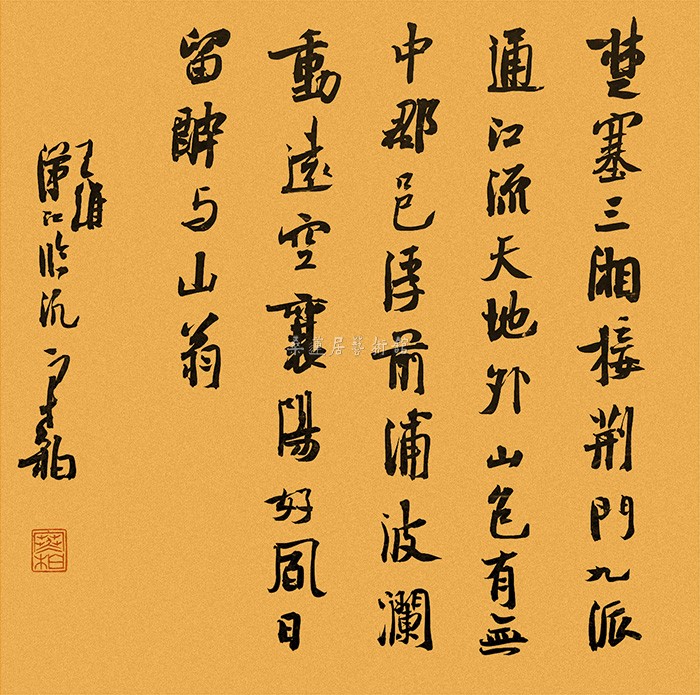 楚塞三湘接荊門九派
通江流天地外山色有無
中郡邑浮前浦波瀾
動遠空襄陽好風日
留酔与山翁
王維
漢江臨汎
桑蓮居藝術館